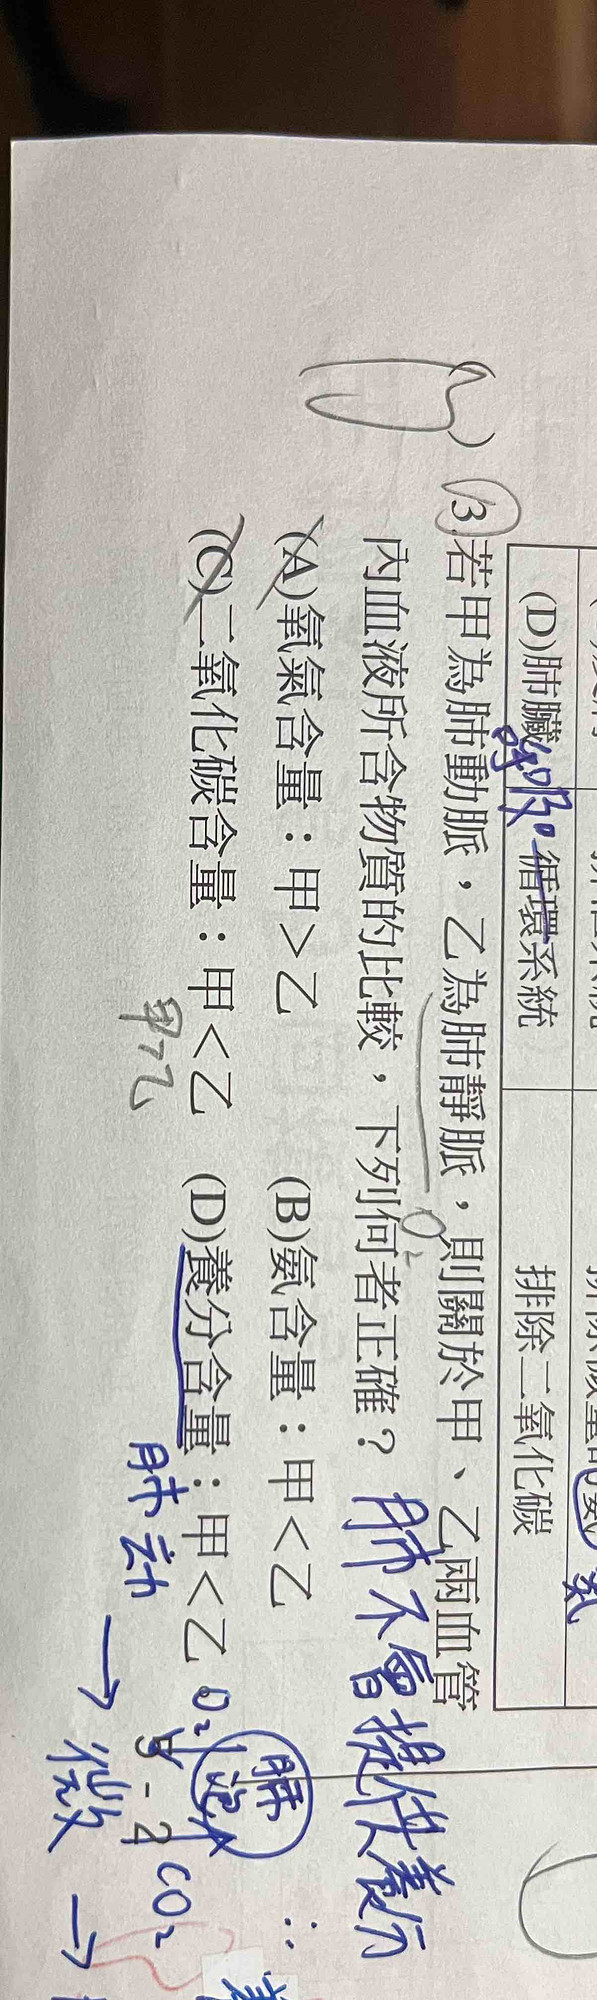 (D)肺臟 循環系統 排除二氧化碳
呼吸
氨
( ) 13.若甲為肺動脈，乙為肺靜脈，則關於甲、乙兩血管
O₂
內血液所含物質的比較，下列何者正確？ 肺不會提供養分
(A)氧氣含量：甲＞乙 (B)氨含量：甲＜乙
肺泡
∴
(C)二氧化碳含量：甲＜乙 (D)養分含量：甲＜乙
O₂
甲>乙
肺動 → 微 →
CO₂